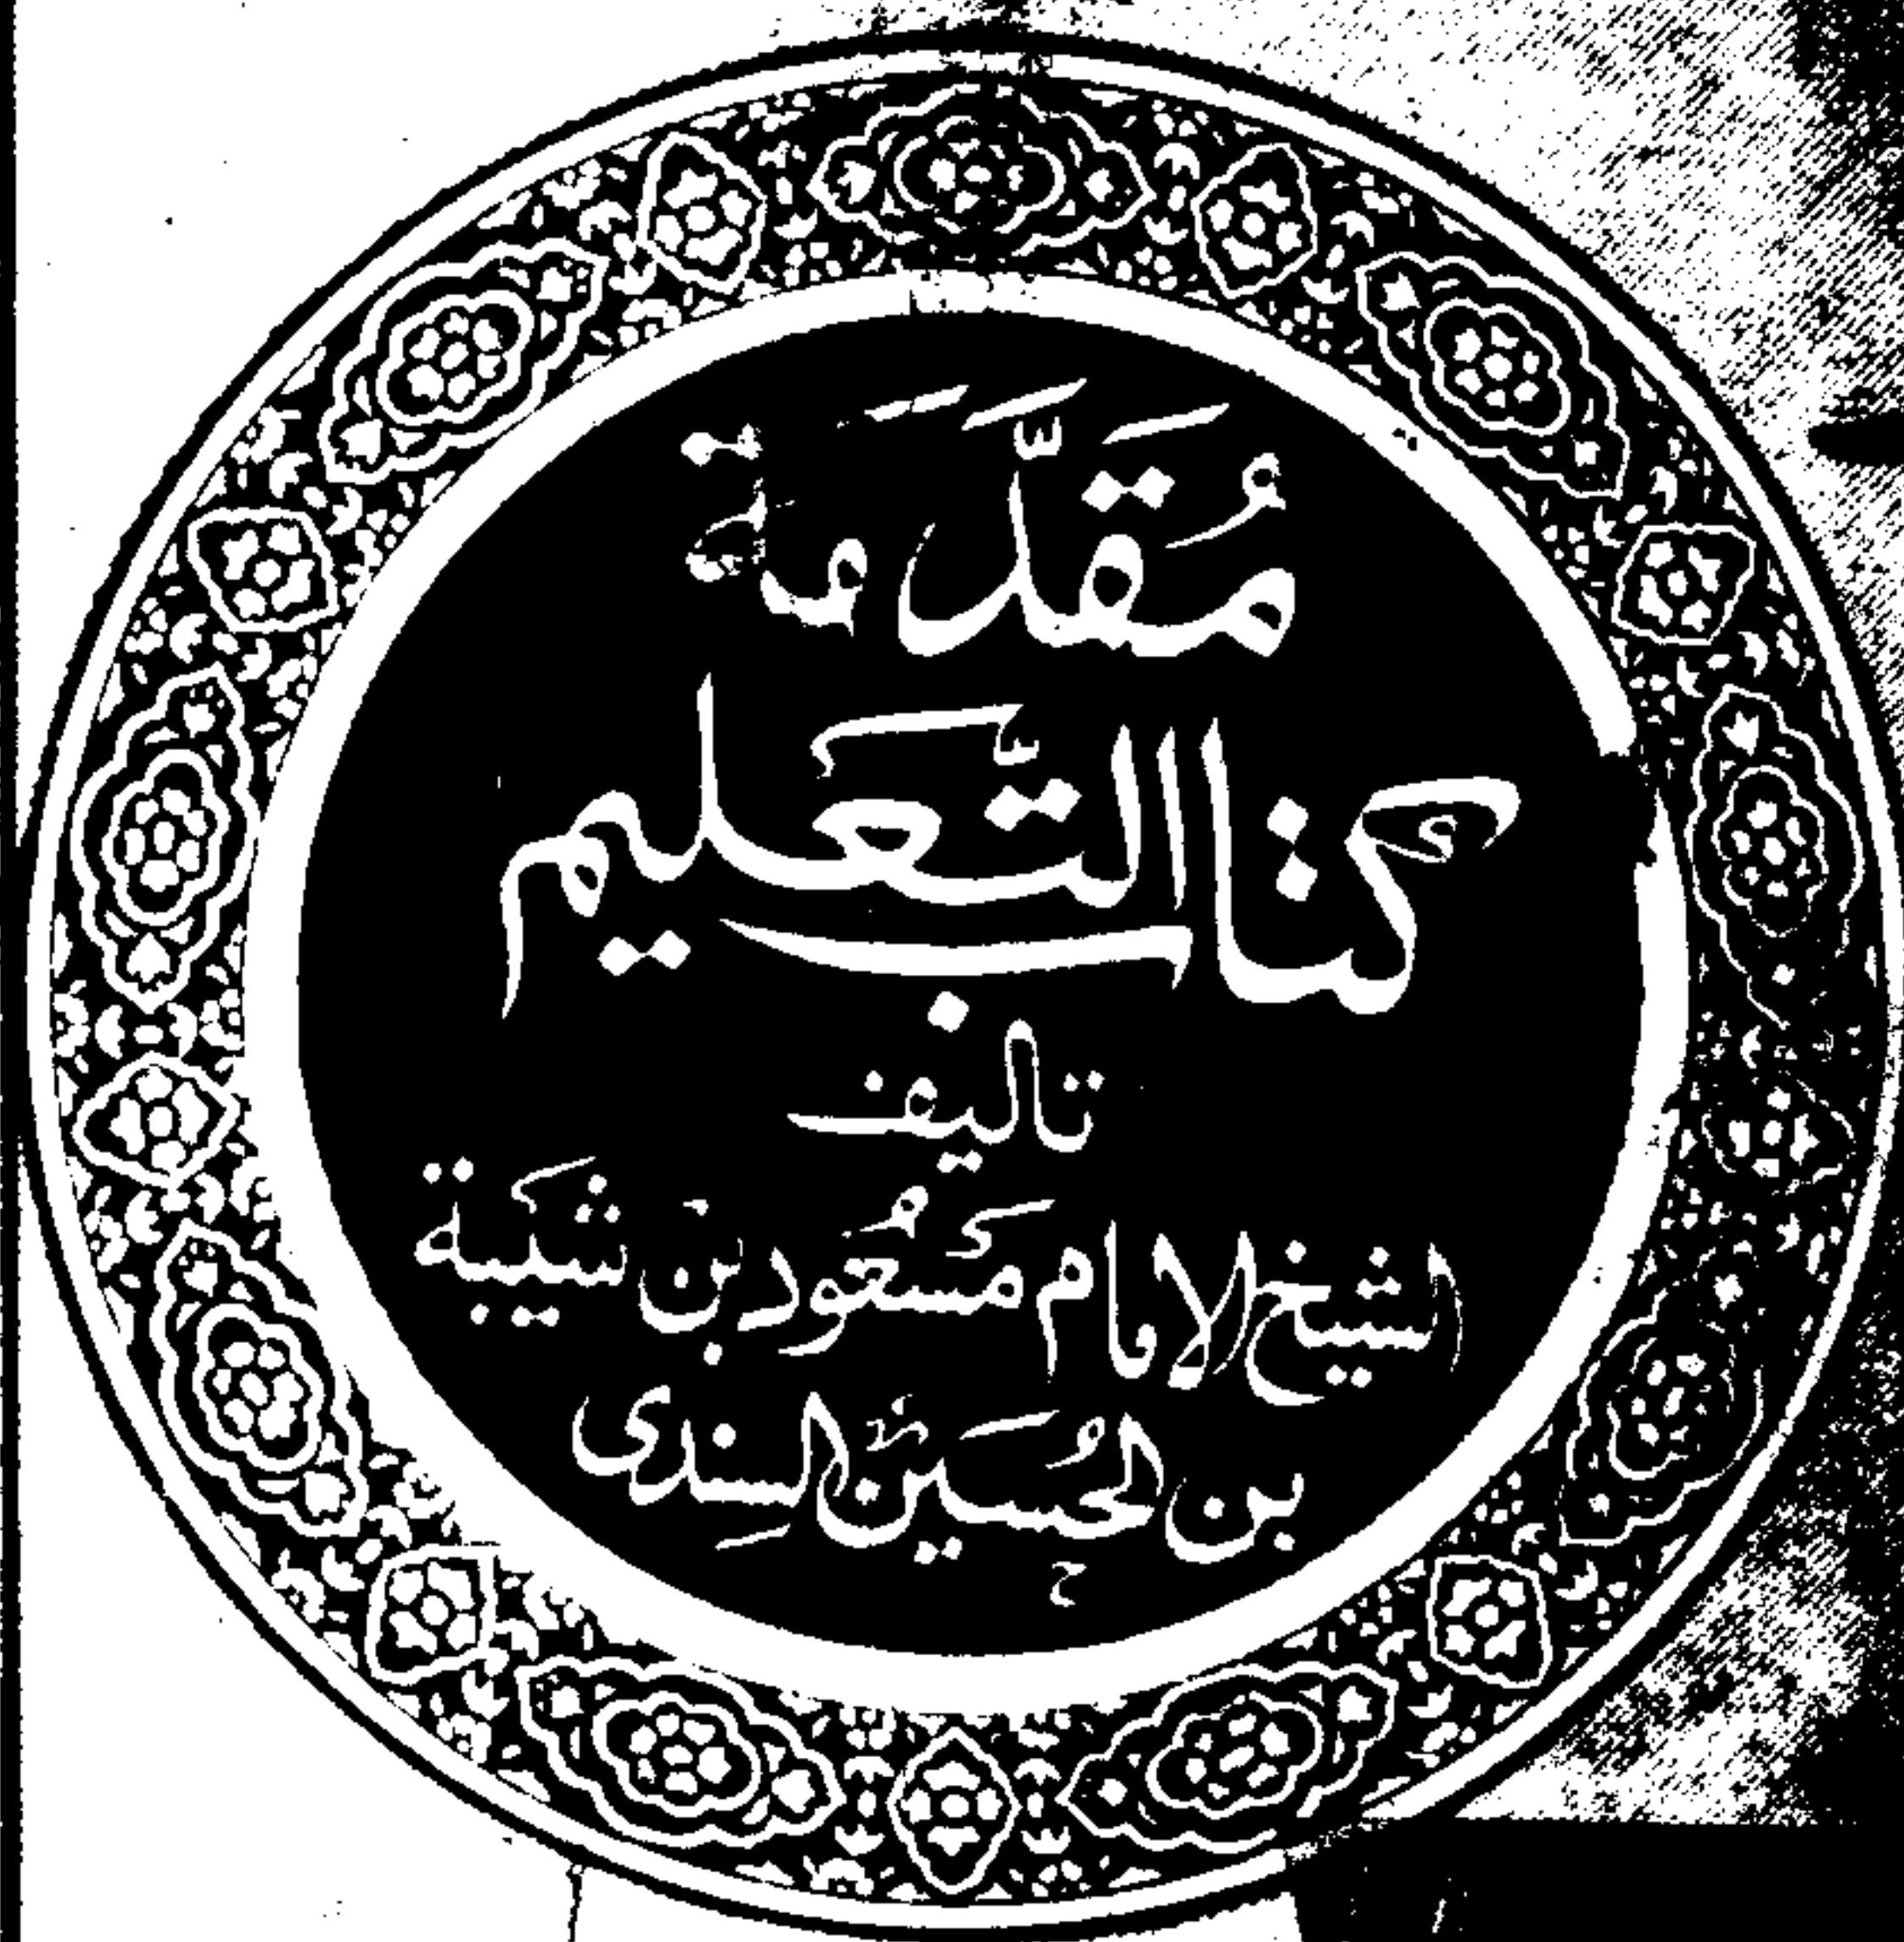 مُقَدِّمَة
كتاب التَّعليم
تاليف
الشيخ الامام مسعود بن شيبة
بن الحسين السندى